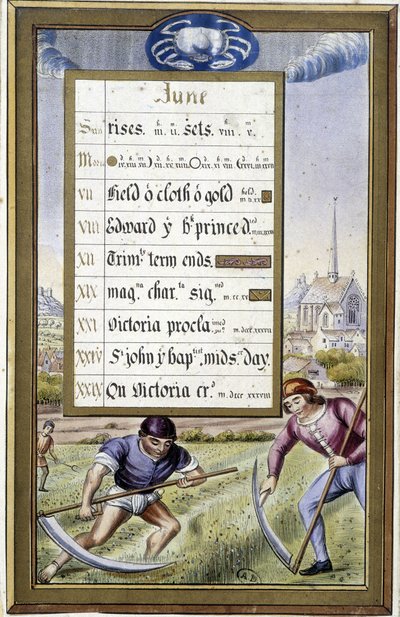 June
Sun rises. iii. u. sets. viii. v.
Moon
VII Field ó cloth ó gold held m d xx
VIII Edward ye bk prince died
XII Trinty term ends.
XIX magna charta signed m cc xv
XXI Victoria proclaimed m.dccc.xxxvii
XXIV St john ye baptist, mids.r day.
XXIX Qn Victoria crd m dccc xxxviii